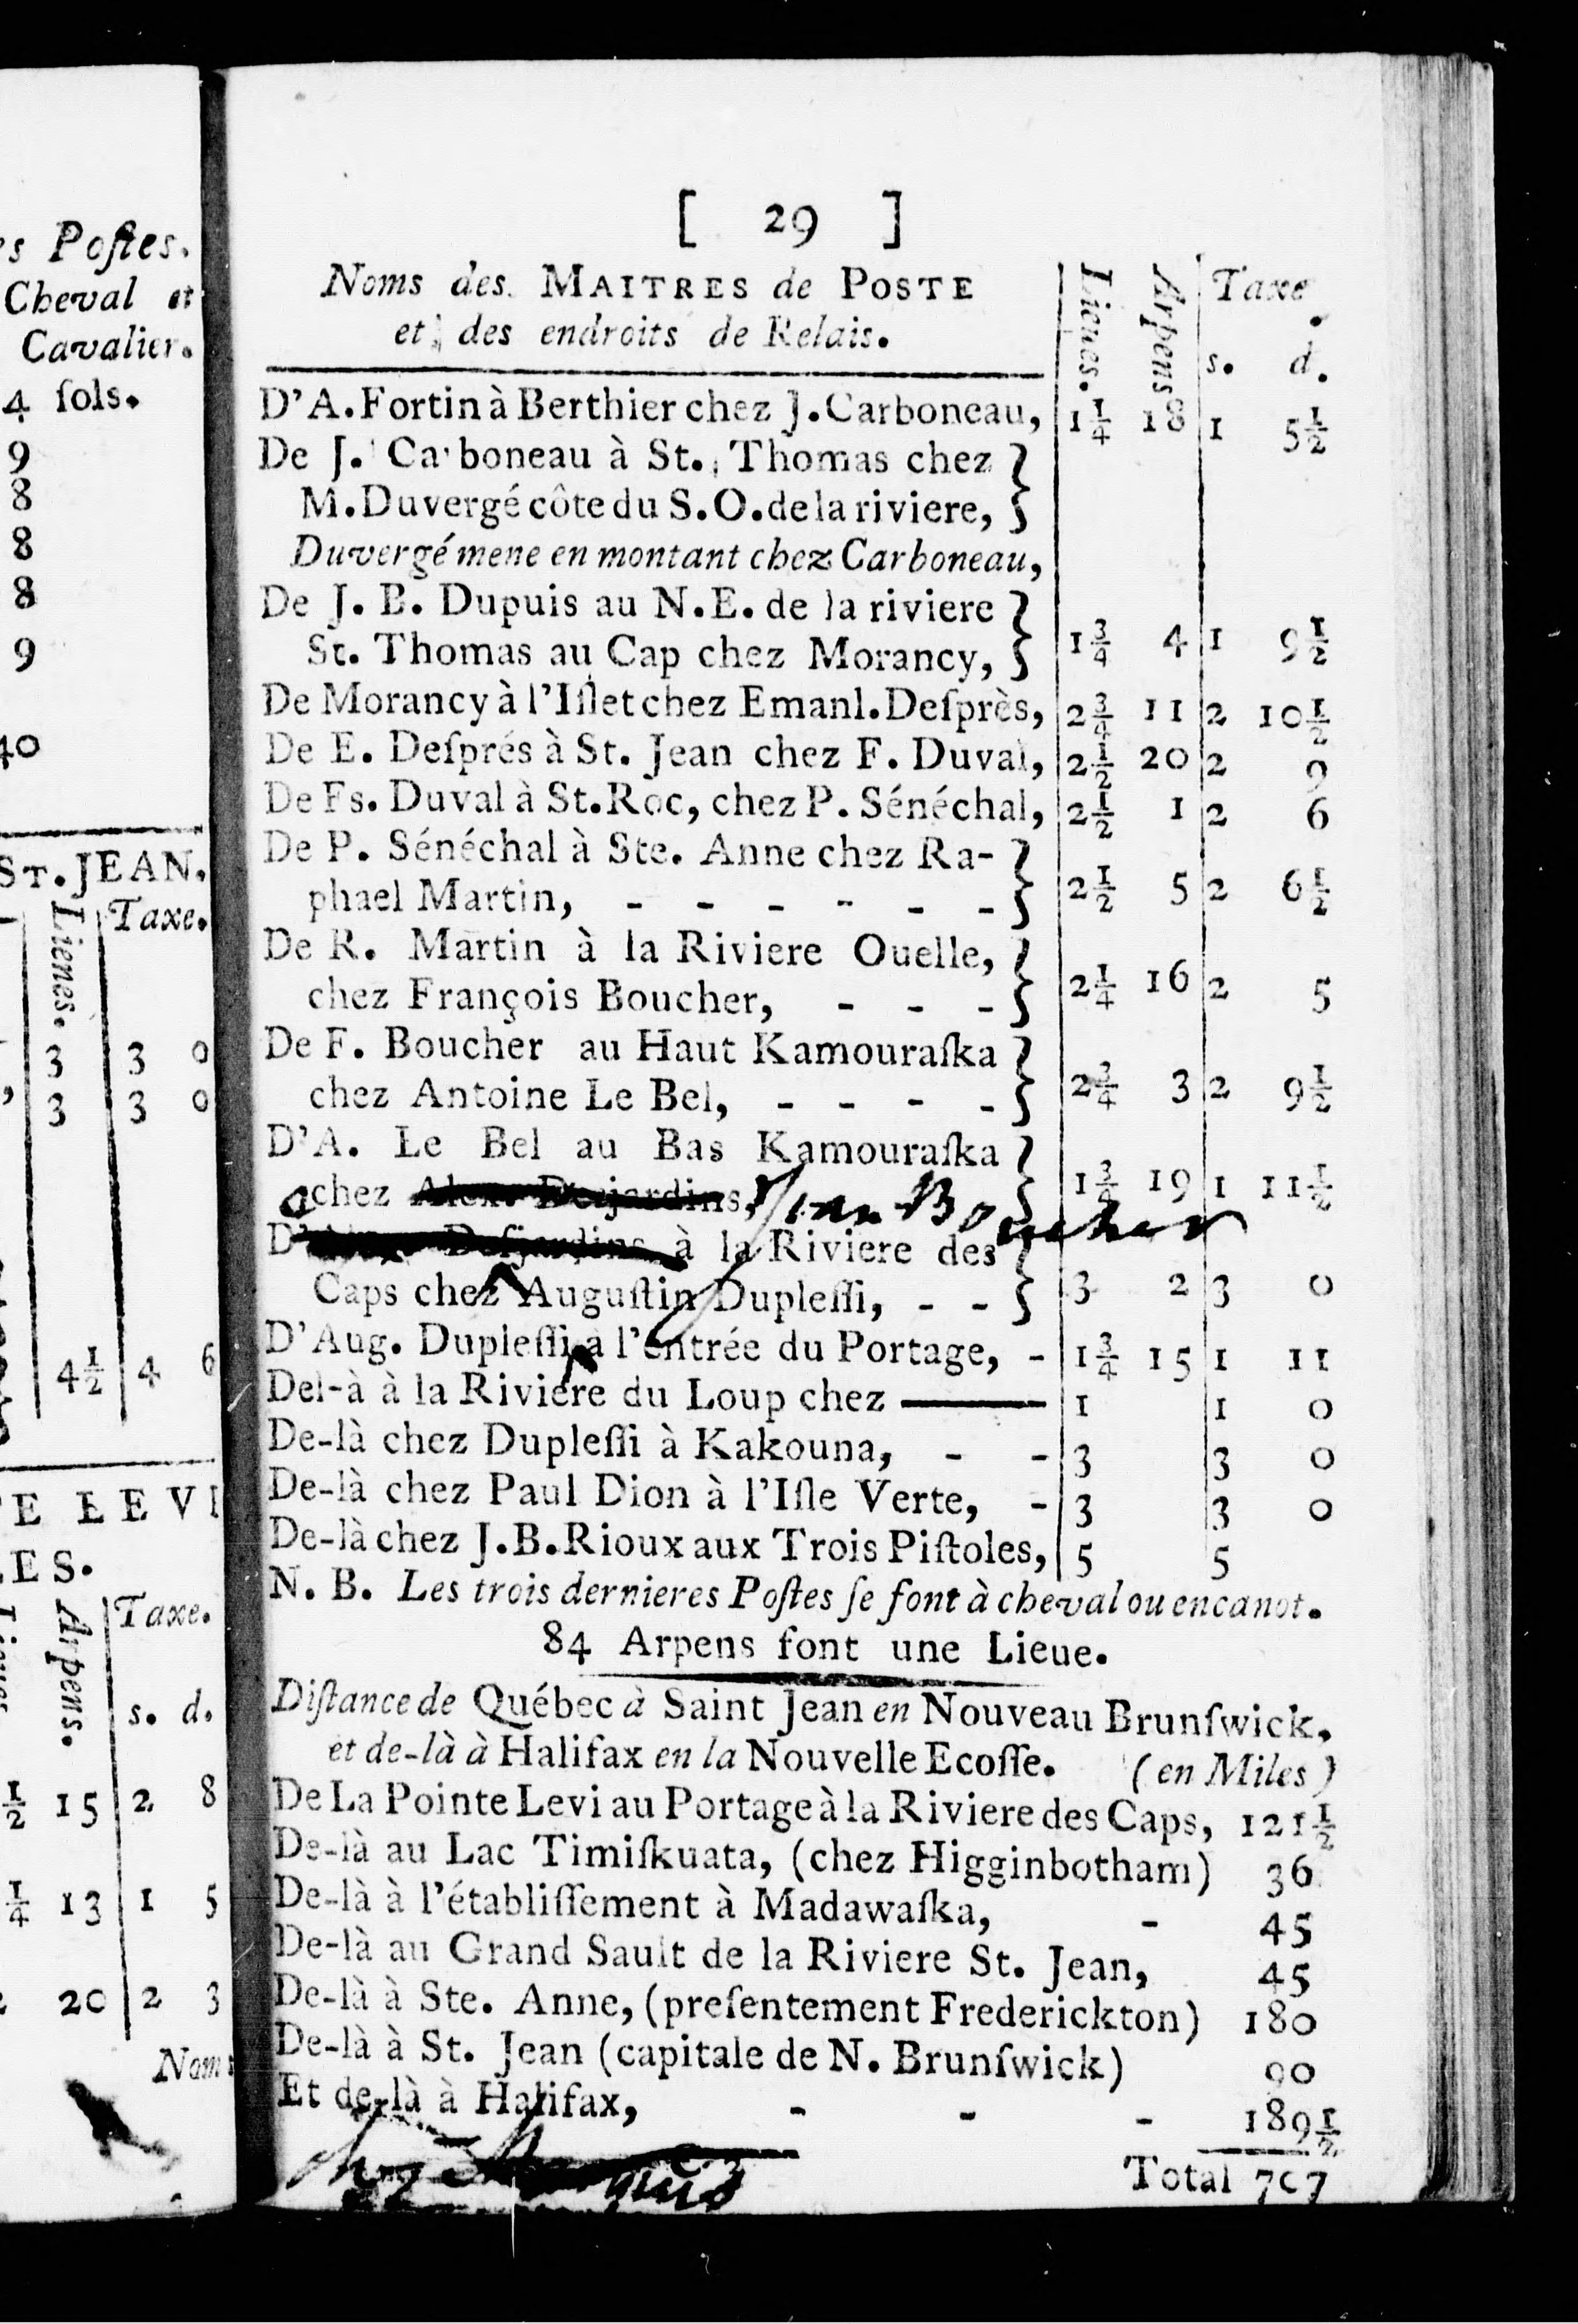 es Poſtes.
Cheval et
Cavalier.
4 ſols.
9
8
8
8
9
40
ST. JEAN.
Lienes. Taxe.
3 3 0
3 3 0
4½ 4 6
E LEVI
ES.
Arpens. Taxe.
s. d.
½ 15 2 8
¼ 13 1 5
20 2 3
Noms
[ 29 ]
Noms des MAITRES de POSTE
et des endroits de Relais.
Lienes. Arpens Taxe
s. d.
D'A. Fortin à Berthier chez J. Carboneau, 1¼ 18 1 5½
De J. Carboneau à St. Thomas chez
M. Duvergé côte du S.O. de la riviere,
Duvergé mene en montant chez Carboneau,
De J. B. Dupuis au N.E. de la riviere
St. Thomas au Cap chez Morancy, 1¾ 4 1 9½
De Morancy à l'Iſlet chez Emanl. Deſprès, 2¾ 11 2 10½
De E. Deſprés à St. Jean chez F. Duval, 2½ 20 2 9
De Fs. Duval à St. Roc, chez P. Sénéchal, 2½ 1 2 6
De P. Sénéchal à Ste. Anne chez Ra-
phael Martin, - - - - - - 2½ 5 2 6½
De R. Martin à la Riviere Ouelle,
chez François Boucher, - - - 2¼ 16 2 5
De F. Boucher au Haut Kamouraſka
chez Antoine Le Bel, - - - - 2¾ 3 2 9½
D'A. Le Bel au Bas Kamouraſka
chez Alex. Desjardins, Jean Boucher 1¾ 19 1 11½
D' Deſjardins à la Riviere des
Caps chez Auguſtin Dupleſſi, - - 3 2 3 0
D'Aug. Dupleſſi a l'entrée du Portage, - 1¾ 15 1 11
Del-à à la Riviere du Loup chez ——— 1 1 0
De-là chez Dupleſſi à Kakouna, - - 3 3 0
De-là chez Paul Dion à l'Iſle Verte, - 3 3 0
De-là chez J.B. Rioux aux Trois Piſtoles, 5 5
N. B. Les trois dernieres Poſtes ſe font à cheval ou en canot.
84 Arpens font une Lieue.
Diſtance de Québec à Saint Jean en Nouveau Brunſwick,
et de-là à Halifax en la Nouvelle Ecoſſe. (en Miles)
De La Pointe Levi au Portage à la Riviere des Caps, 121½
De-là au Lac Timiſkuata, (chez Higginbotham) 36
De-là à l'établiſſement à Madawaſka, - 45
De-là au Grand Sault de la Riviere St. Jean, 45
De-là à Ste. Anne, (preſentement Frederickton) 180
De-là à St. Jean (capitale de N. Brunſwick) 90
Et de-là à Halifax, - - - 189½
Total 707